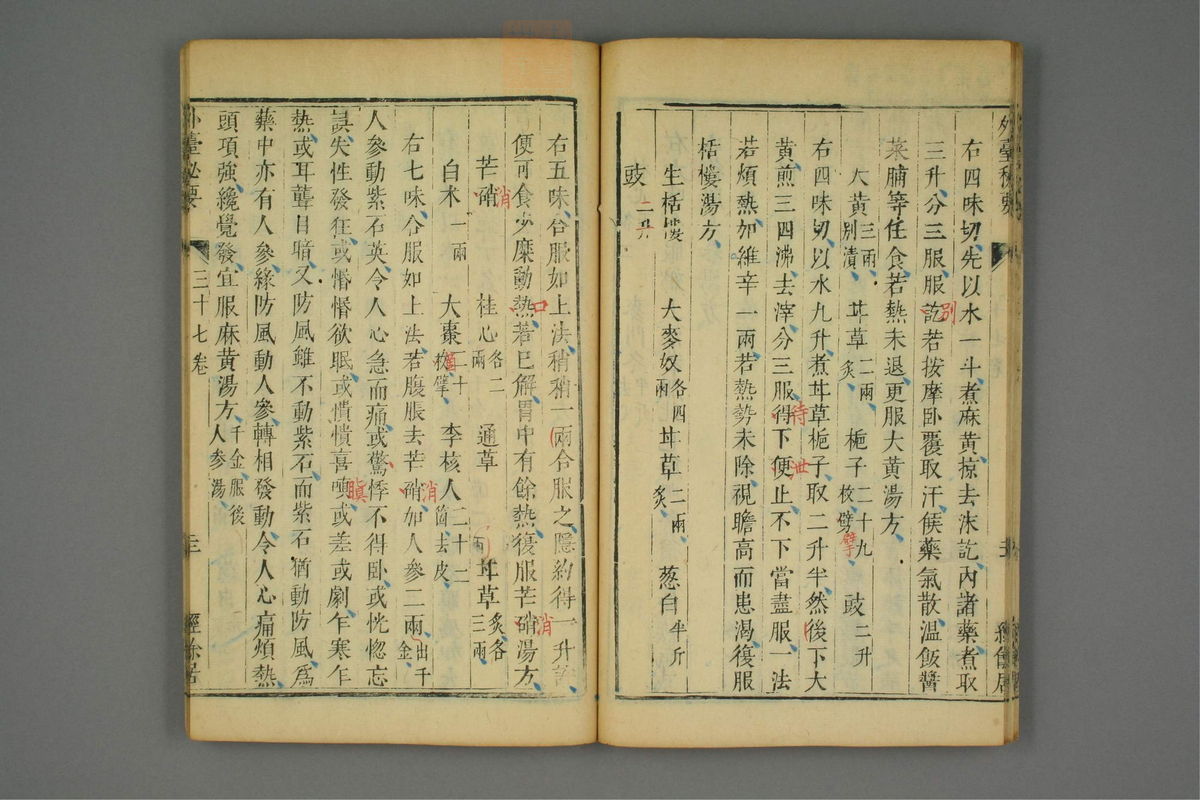 外臺秘要
右四味切先以水一斗煮麻黄掠去沫訖內諸藥煮取
三升分三服服訖若按摩卧覆取汗候藥氣散溫飯醬
别
菜脯等任食若熱未退更服大黄湯方
大黄三兩别漬 甘草二兩炙 梔子二十九枚劈 豉二升
擘
右四味切以水九升煮甘草梔子取二升半然後下大
黄煎三四沸去滓分三服得下便止不下當盡服一法
待 泄
若煩熱加維辛一兩若熱勢未除視瞻高而患渴復服
栝樓湯方
生栝樓 大麥奴各四兩 甘草二兩炙 葱白半斤
豉二升
右五味合服如上法稍稍一兩合服之隱約得一升許
便可食少糜動熱若已解胃中有餘熱復服芒硝湯方
口 消
芒硝 桂心各二兩 通草 甘草炙各三兩
消
白术一兩 大棗二十枚擘 李核人二十二箇去皮
右七味合服如上法若腹脹去芒硝加人參二兩出千金
消
人參動紫石英令人心急而痛或驚悸不得卧或恍惚忘
誤失性發狂或惛惛欲眠或憒憒喜嗔或差或劇乍寒乍
瞋
熱或耳聾目暗又防風雖不動紫石而紫石猶動防風爲
藥中亦有人參緣防風動人參轉相發動令人心痛煩熱
頭項強纔覺發宜服麻黄湯方千金服後人参湯
外臺秘要 三十七卷 三 經餘居